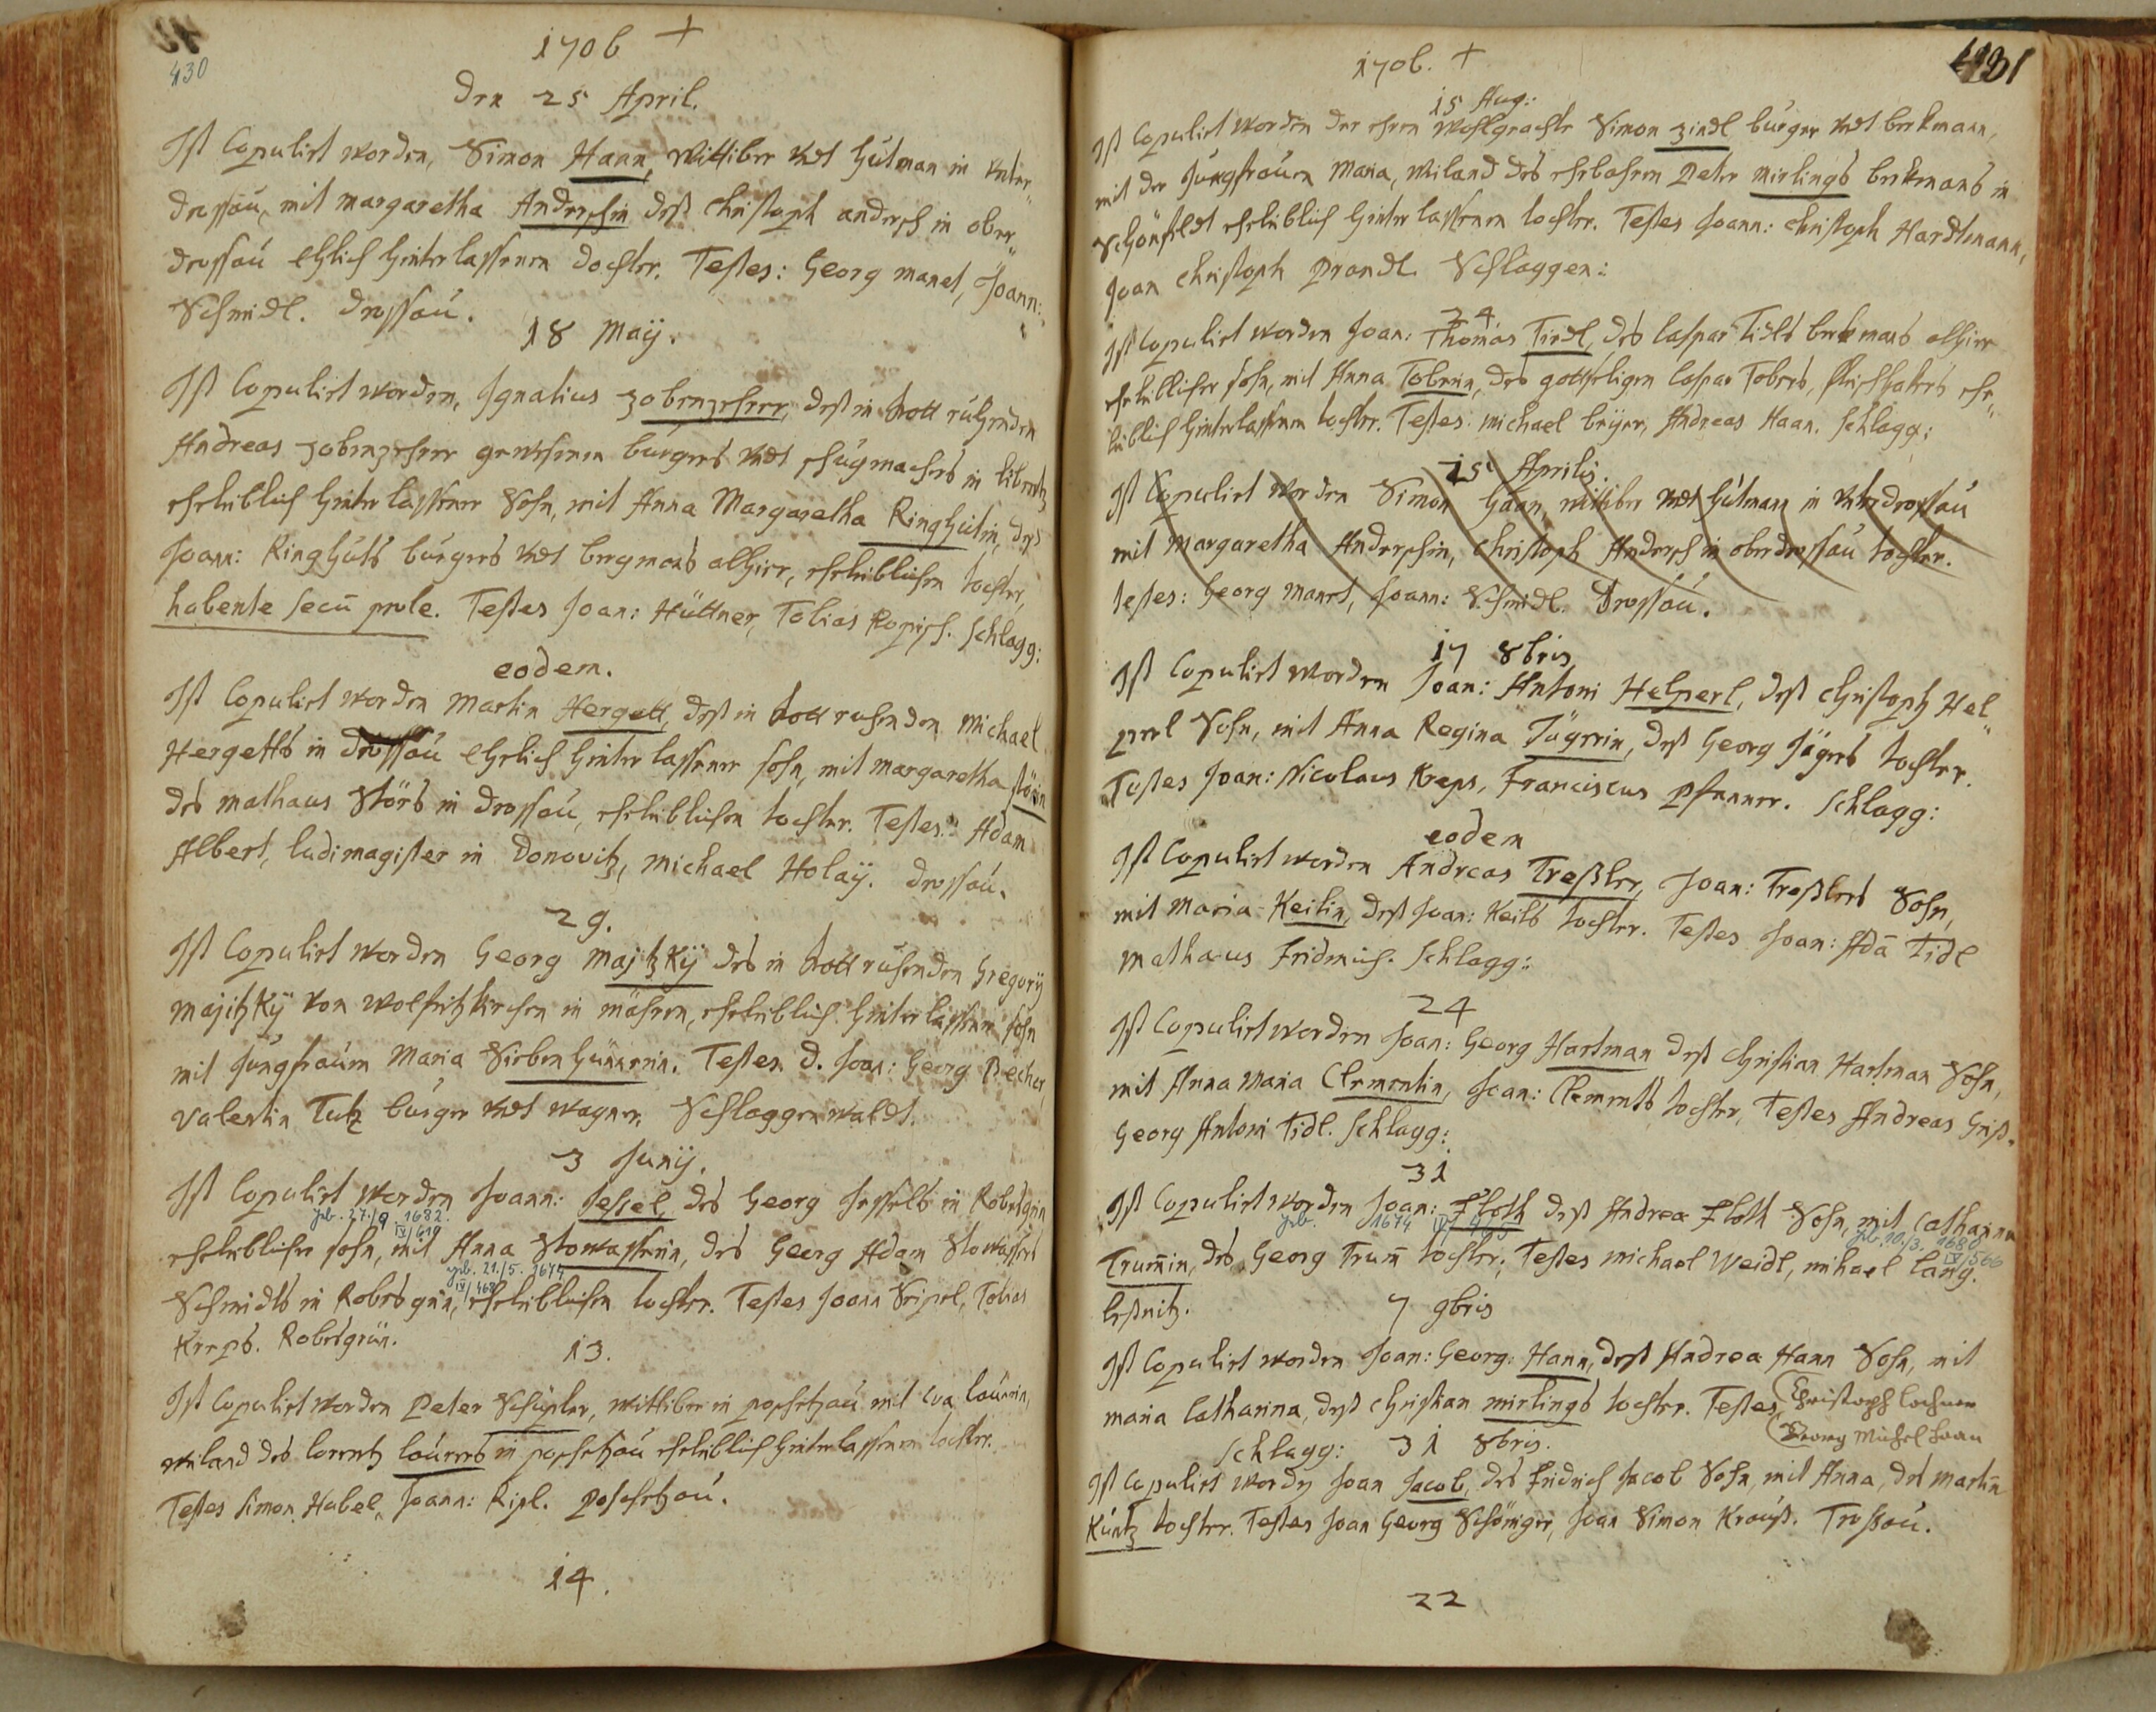 430
1706 +
Den 25 April.
Ist Copulirt worden, Simon Hann, Wittiber undt Hutman in unter„
drossau, mit margaretha Anderschin deß Christoph andersch in ober„
drossau Ehlich hinter lassenen dochter. Testes: Georg manet, Joann:
Schmidl. drossau.
18 Maÿ.
Ist Copulirt worden, Ignatius zobenzehrer, deß in Gott ruhenden
Andreas zobenzehrer gewesenen burgers undt zeugmachers in
eheleiblich hinter lassener Sohn, mit Anna Margaretha Ringhutin, deß
Joann: Ringhuts burgers undt bergmans alhier, eheleiblichen tochter,
habente secū prole. Testes Joan: Hüttner, Tobias Kopisch. Schlagg:
eodem.
Ist Copulirt worden Martin Hergett, deß in Gott ruhenden Michael
Hergetts in drossau Ehelich hinter lassener sohn, mit margaretha störin
des mathaus Störs in drossau, eheleiblichen tochter. Testes: Adam
Albert, ludimagister in Donovitz, michael Holaÿ. drossau.
29.
Ist Copulirt worden Georg majtzkÿ des in Gott ruhenden Gregorÿ
majitzkÿ von wolfritzkirchen in mähren, eheleiblich hinter lassener sohn
mit Jungfrauen Maria Siebenhünerin. Testes D. Joan: Georg Becher,
Valentin Tutz burger undt wagner, Schlaggenwaldt.
3 Junÿ.
Ist Copulirt worden Joann: Jessel, des Georg Jessels in Robesgrün
geb. 27./9. 1682.
IV/619
eheleiblicher sohn, mit Anna Stowasserin, des Georg Adam Stowassers
geb. 21./5. 1675
IV/468
Schmidts in Robesgrün, eheleiblichen tochter. Testes Joann Seipel, Tobias
Kreps. Robesgrün.
13.
Ist Copulirt worden Peter Schüpler, wittiber in poschetzau mit Eva laurerin,
weiland des lorentz laurers in poschetzau eheleiblich hinter lassenen tochter.
Testes Simon Habel, Joann: Ripl. Poschetzau.
14.
431
1706. +
15 Aug:
Ist Copulirt worden der ehren Wohlgeachte Simon zindl burger undt berkmann,
mit der Jungfrauen Maria, weiland des ehrbahren Peter mirlings berkmans in
Schönfeldt eheleiblich hinter lassenen tochter. Testes Joann: Christoph Hardtmann,
Joan Christoph Prandl. Schlaggen:
24.
Ist Copulirt worden Joan: Thomas Tirdl, des Caspar Tidls berkmans alhier
eheleiblicher sohn, mit Anna Toberin, des gottseligen Caspar Tobers, fleischhakers ehe„
leiblich hinterlassenen tochter. Testes: michael beÿer, Andreas Haan. Schlagg:
25 Aprilis.
Ist Copulirt worden Simon Haan, wittiber undt hutmann in unterdrossau
mit margaretha Anderschin, Christoph Andersch in oberdrossau tochter.
testes: Georg manet, Joann: Schmidl. Drossau.
17 8bris
Ist Copulirt worden Joan: Antoni Helperl, deß Christoph Hel„
perl Sohn, mit Anna Regina Jägerin, deß Georg Jägers tochter.
Testes Joan: Nicolaus Kreps, Franciscus Pfanner. Schlagg:
eodem
Ist Copulirt worden Andreas Treßler, Joan: Treßlers Sohn,
mit Maria Keilin, deß Joan: Keils tochter. Testes Joan: Adā Tidl
Mathaus Fridrich. Schlagg:
24
Ist Copulirt worden Joan: Georg Hartman deß Christian Hartman Sohn,
mit Anna Maria Clementin, Joan: Clements tochter, Testes Andreas
Georg Antoni Tidl. Schlagg:
31
Ist Copulirt worden Joan: Floth deß Andrea Floth Sohn, mit Catharina
geb. 1674
geb. 10./3. 1680
IV/566
Trum̄in, des Georg Trum̄ tochter, Testes michael Weidl, mihael lang.
leßnitz.
7 9bris
Ist Copulirt worden Joan: Georg: Hann, deß Andrea Hann Sohn, mit
maria Catharina, deß Christian mirlings tochter. Testes Christoph lochner
Georg Michel haan
Schlagg: 31 8bris.
Ist Copulirt worden Joan Jacob, des Fridrich Jacob Sohn, mit Anna, des Martin
Kuntz tochter. Testes Joan Georg Schöniger, Joan Simon Krauß. Troßau.
22